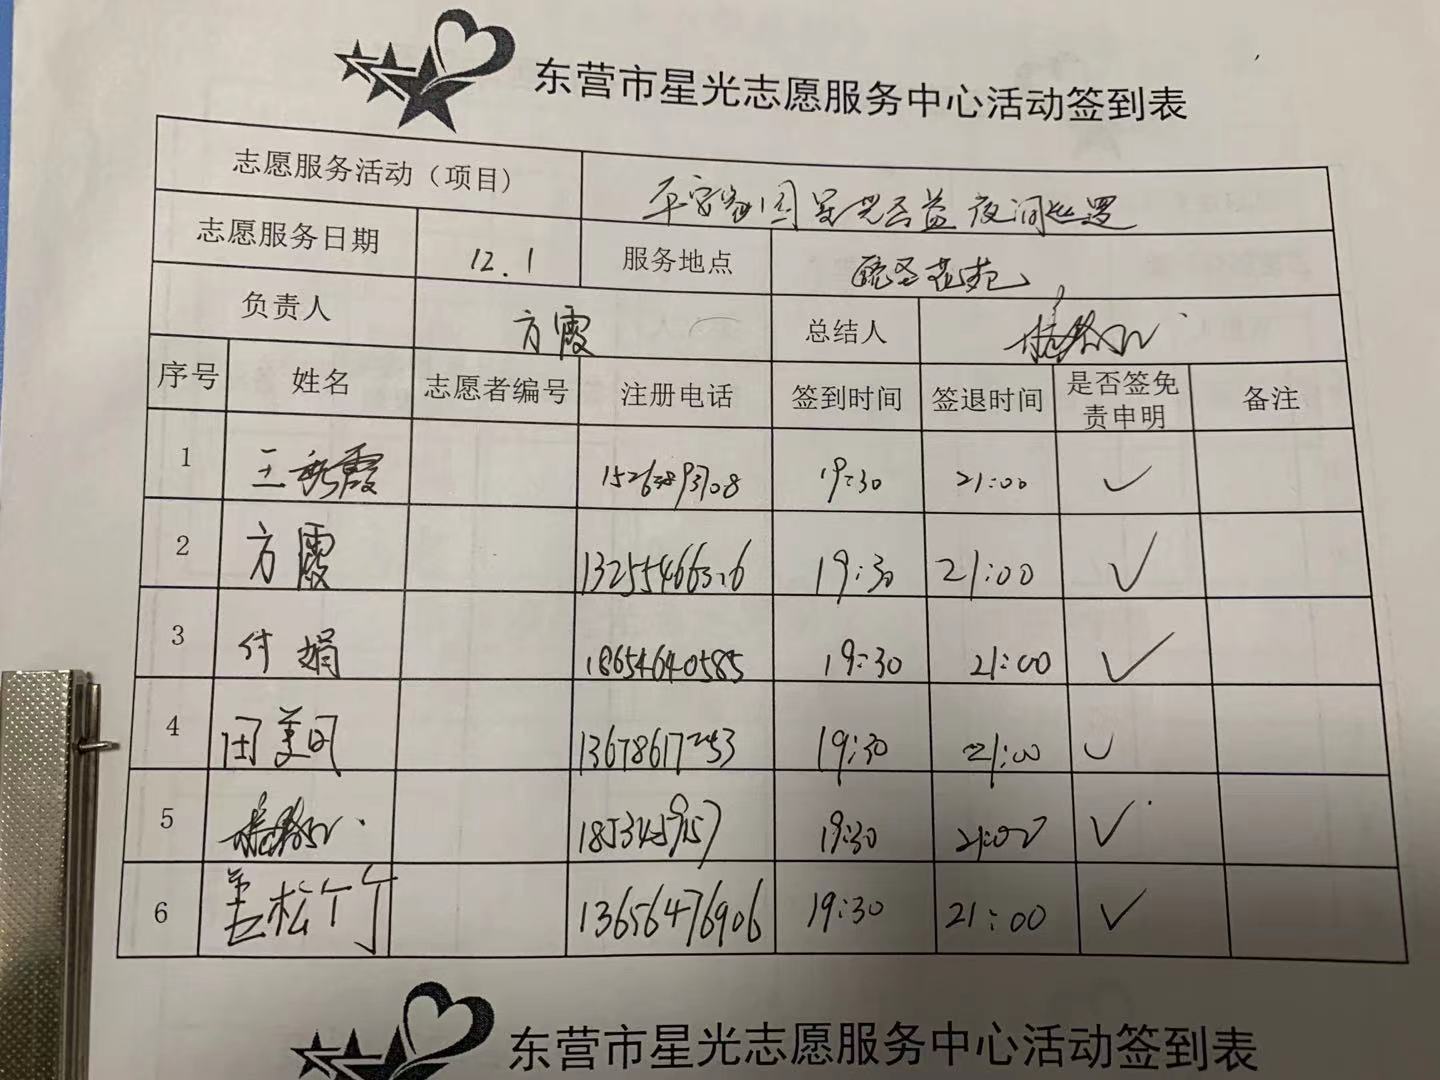 东营市星光志愿服务中心活动签到表
志愿服务活动（项目） 平安家园星光公益夜间巡逻
志愿服务日期 12.1 服务地点 花苑
负责人 方霞 总结人
序号 姓名 志愿者编号 注册电话 签到时间 签退时间 是否签免责申明 备注
1 王秀霞 19:30 21:00 ✓
2 方霞 19:30 21:00 ✓
3 付娟 18654640585 19:30 21:00 ✓
4 田美凤 13678617253 19:30 21:00 ✓
5 19:30 21:00 ✓
6 姜松竹 13656476906 19:30 21:00 ✓
东营市星光志愿服务中心活动签到表